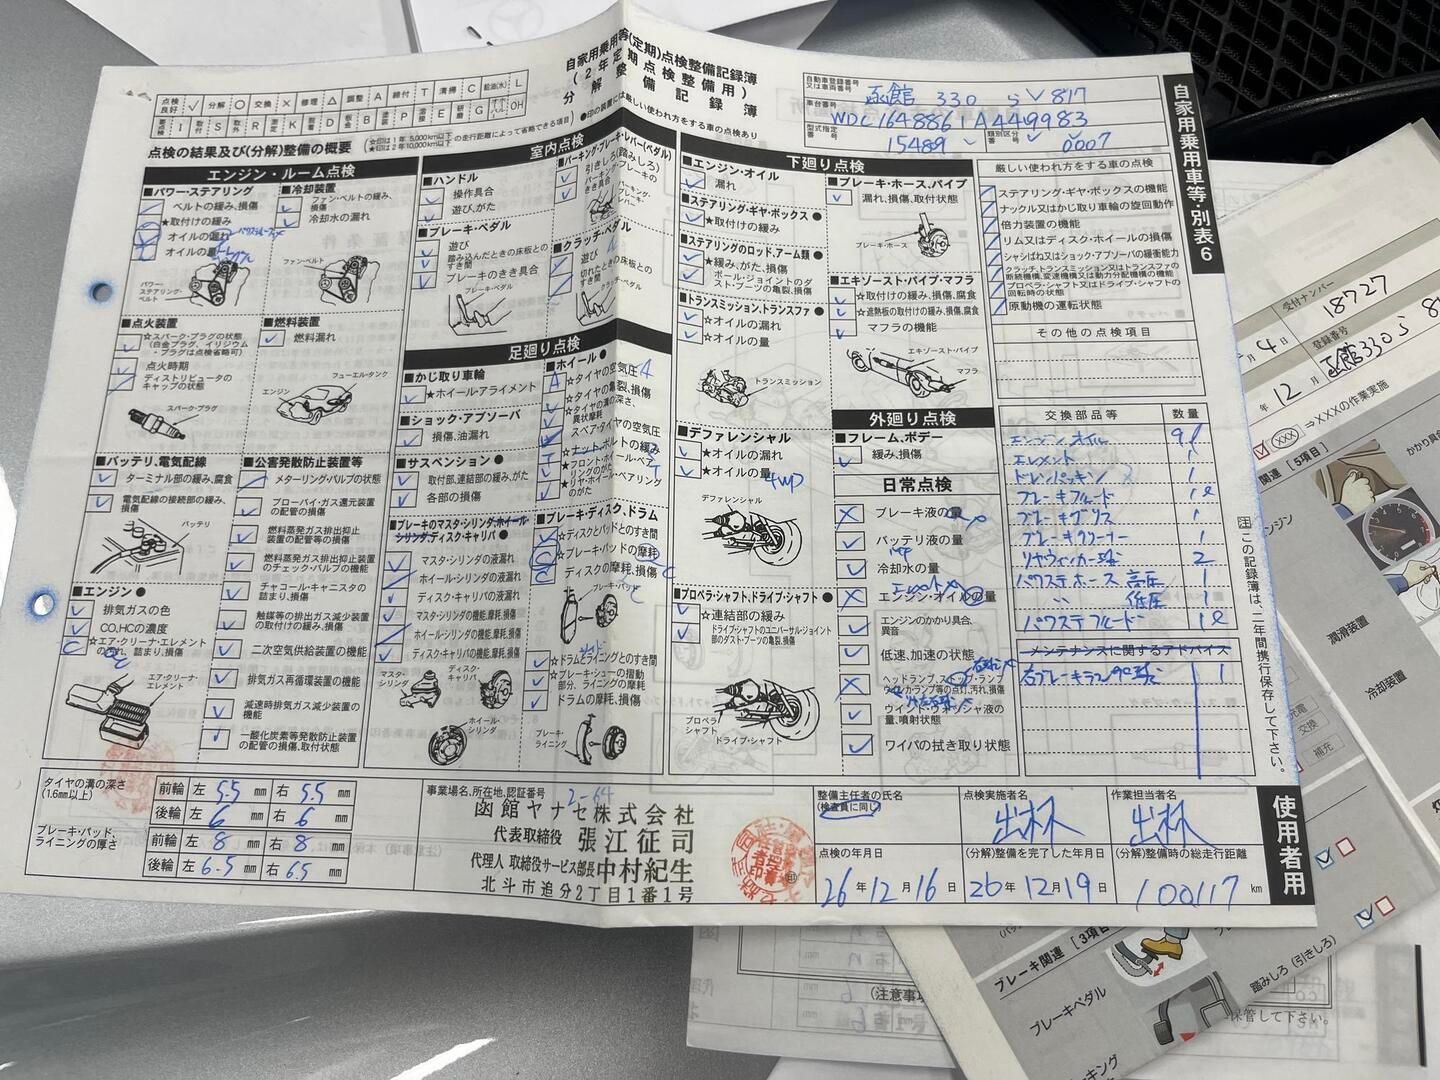 自家用乗用等(定期)点検整備記録簿
(2年定期点検整備用)
分解整備記録簿
●印の点検は厳しい使われ方をする車の点検あり
点検良好 ✓ 分解 ○ 交換 × 修理 △ 調整 A 締付 T 清掃 C 給油(水) L
☆印は1年 5,000km以下
★印は2年10,000km以下
の走行距離によって省略できる項目
点検の結果及び(分解)整備の概要
自動車登録番号又は車両番号 函館 330 さ 817
車台番号 WDC1648861A449983
型式指定番号 15489
類別区分番号 0007
自家用乗用車等・別表6
エンジン・ルーム点検
■パワー・ステアリング
ベルトの緩み、損傷
★取付けの緩み
オイルの漏れ
オイルの量
パワー・ステアリング・ベルト
■冷却装置
ファン・ベルトの緩み、損傷
冷却水の漏れ
ファン・ベルト
■点火装置
☆スパーク・プラグの状態
(白金プラグ、イリジウム・プラグは点検省略可)
点火時期
ディストリビュータのキャップの状態
スパーク・プラグ
■燃料装置
燃料漏れ
フューエル・タンク
エンジン
■バッテリ、電気配線
ターミナル部の緩み、腐食
電気配線の接続部の緩み、損傷
バッテリ
■エンジン
排気ガスの色
CO、HCの濃度
☆エア・クリーナ・エレメントの汚れ、詰まり、損傷
エア・クリーナ・エレメント
■公害発散防止装置等
メターリング・バルブの状態
ブローバイ・ガス還元装置の配管の損傷
燃料蒸発ガス排出抑止装置の配管等の損傷
燃料蒸発ガス排出抑止装置のチェック・バルブの機能
チャコール・キャニスタの詰まり、損傷
触媒等の排出ガス減少装置の取付けの緩み、損傷
二次空気供給装置の機能
排気ガス再循環装置の機能
減速時排気ガス減少装置の機能
一酸化炭素等発散防止装置の配管の損傷、取付状態
室内点検
■ハンドル
操作具合
遊び、がた
■ブレーキ・ペダル
遊び
踏み込んだときの床板とのすき間
ブレーキのきき具合
ブレーキ・ペダル
■パーキング・ブレーキ・レバー(ペダル)
引きしろ(踏みしろ)
■クラッチ・ペダル
遊び
切れたときの床板とのすき間
クラッチ・ペダル
足廻り点検
■かじ取り車輪
★ホイール・アライメント
■ショック・アブソーバ
損傷、油漏れ
■サスペンション●
取付部、連結部の緩み、がた
各部の損傷
■ブレーキのマスタ・シリンダ、ホイール・シリンダ、ディスク・キャリパ●
マスタ・シリンダの液漏れ
ホイール・シリンダの液漏れ
ディスク・キャリパの液漏れ
マスタ・シリンダの機能、摩耗、損傷
ホイール・シリンダの機能、摩耗、損傷
ディスク・キャリパの機能、摩耗、損傷
マスタ・シリンダ
ディスク・キャリパ
ホイール・シリンダ
■ホイール●
☆タイヤの空気圧
☆タイヤの亀裂、損傷
☆タイヤの溝の深さ、異状摩耗
スペアタイヤの空気圧
☆ナット、ボルトの緩み
★フロント・ホイール・ベアリングのがた
★リヤ・ホイール・ベアリングのがた
■ブレーキ・ディスク、ドラム
☆ディスクとパッドとのすき間
☆ブレーキパッドの摩耗
ディスクの摩耗、損傷
ブレーキ・パッド
☆ドラムとライニングとのすき間
☆ブレーキ・シューの摺動部分、ライニングの摩耗
ドラムの摩耗、損傷
ブレーキ・ライニング
下廻り点検
■エンジン・オイル
漏れ
■ステアリング・ギヤ・ボックス●
★取付けの緩み
■ステアリングのロッド、アーム類●
★緩み、がた、損傷
ボール・ジョイントのダスト・ブーツの亀裂、損傷
■トランスミッション、トランスファ●
☆オイルの漏れ
☆オイルの量
トランスミッション
■デファレンシャル
★オイルの漏れ
★オイルの量
4WD
デファレンシャル
■プロペラ・シャフト、ドライブ・シャフト●
☆連結部の緩み
ドライブ・シャフトのユニバーサル・ジョイント部のダスト・ブーツの亀裂、損傷
プロペラ・シャフト
ドライブ・シャフト
■ブレーキ・ホース、パイプ
漏れ、損傷、取付状態
ブレーキ・ホース
■エキゾースト・パイプ、マフラ
☆取付けの緩み、損傷、腐食
☆遮熱板の取付けの緩み、損傷、腐食
マフラの機能
エキゾースト・パイプ
マフラ
外廻り点検
■フレーム、ボデー
緩み、損傷
日常点検
ブレーキ液の量
バッテリ液の量
冷却水の量
エンジン・オイルの量
エンジンのかかり具合、異音
低速、加速の状態
ヘッドランプ、ストップ・ランプ
ウインカランプ等の点灯、汚れ、損傷
ウインド・ウォッシャ液の量、噴射状態
ワイパの拭き取り状態
厳しい使われ方をする車の点検
ステアリング・ギヤ・ボックスの機能
ナックル又はかじ取り車輪の旋回動作
倍力装置の機能
リム又はディスク・ホイールの損傷
シャシばね又はショック・アブソーバの緩衝能力
クラッチ、トランスミッション又はトランスファの断続機構、変速機構又は動力分配機構の機能
プロペラ・シャフト又はドライブ・シャフトの回転時の状態
原動機の運転状態
その他の点検項目
交換部品等 数量
エンジンオイル 9ℓ
エレメント 1
ドレンパッキン 1
ブレーキフルード 1ℓ
ブレーキグリス 1
ブレーキクリーナー 1
リヤウィンカー球 2
パワステホース 高圧 1
〃 低圧 1
パワステフルード 1ℓ
メンテナンスに関するアドバイス
右ブレーキランプ球 1
注 この記録簿は、二年間携行保存して下さい。
タイヤの溝の深さ(1.6mm以上)
前輪 左 5.5 mm 右 5.5 mm
後輪 左 6 mm 右 6 mm
ブレーキ・パッド、ライニングの厚さ
前輪 左 8 mm 右 8 mm
後輪 左 6.5 mm 右 6.5 mm
事業場名、所在地、認証番号
2-64
函館ヤナセ株式会社
代表取締役 張江征司
代理人 取締役サービス部長 中村紀生
北斗市追分2丁目1番1号
整備主任者の氏名
(検査員に同じ)
点検実施者名 出林
作業担当者名 出林
点検の年月日 26年12月16日
(分解)整備を完了した年月日 26年12月19日
(分解)整備時の総走行距離 100117 km
使用者用
受付ナンバー 18727
登録番号 函館330さ
月 4 日
年 12 月
⇒XXXの作業実施
関連 [5項目]
かかり具合
潤滑装置
冷却装置
交換
補充
ブレーキ関連 [3項目]
ブレーキペダル
踏みしろ(引きしろ)
保管して下さい。